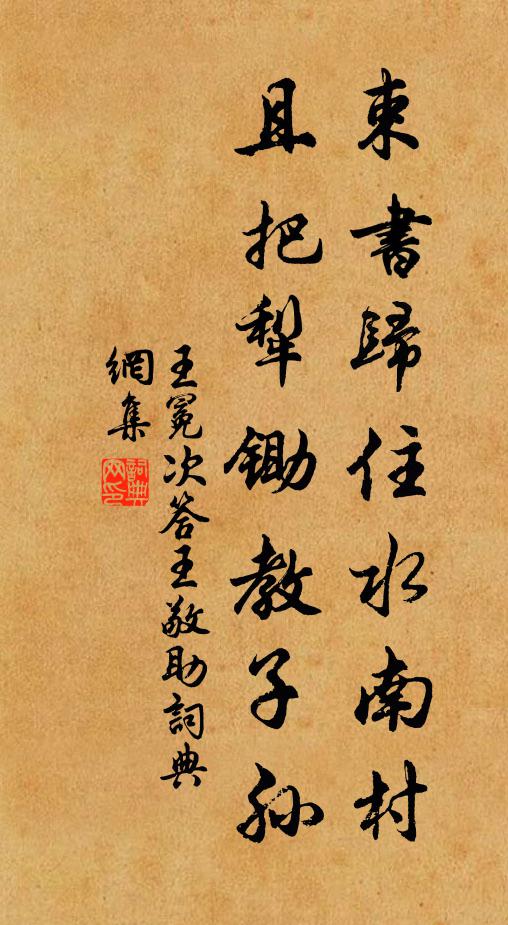 束書歸住水南村
且把犁鋤教子孫
王冕次答王敬助詞典
網集
詞典網印